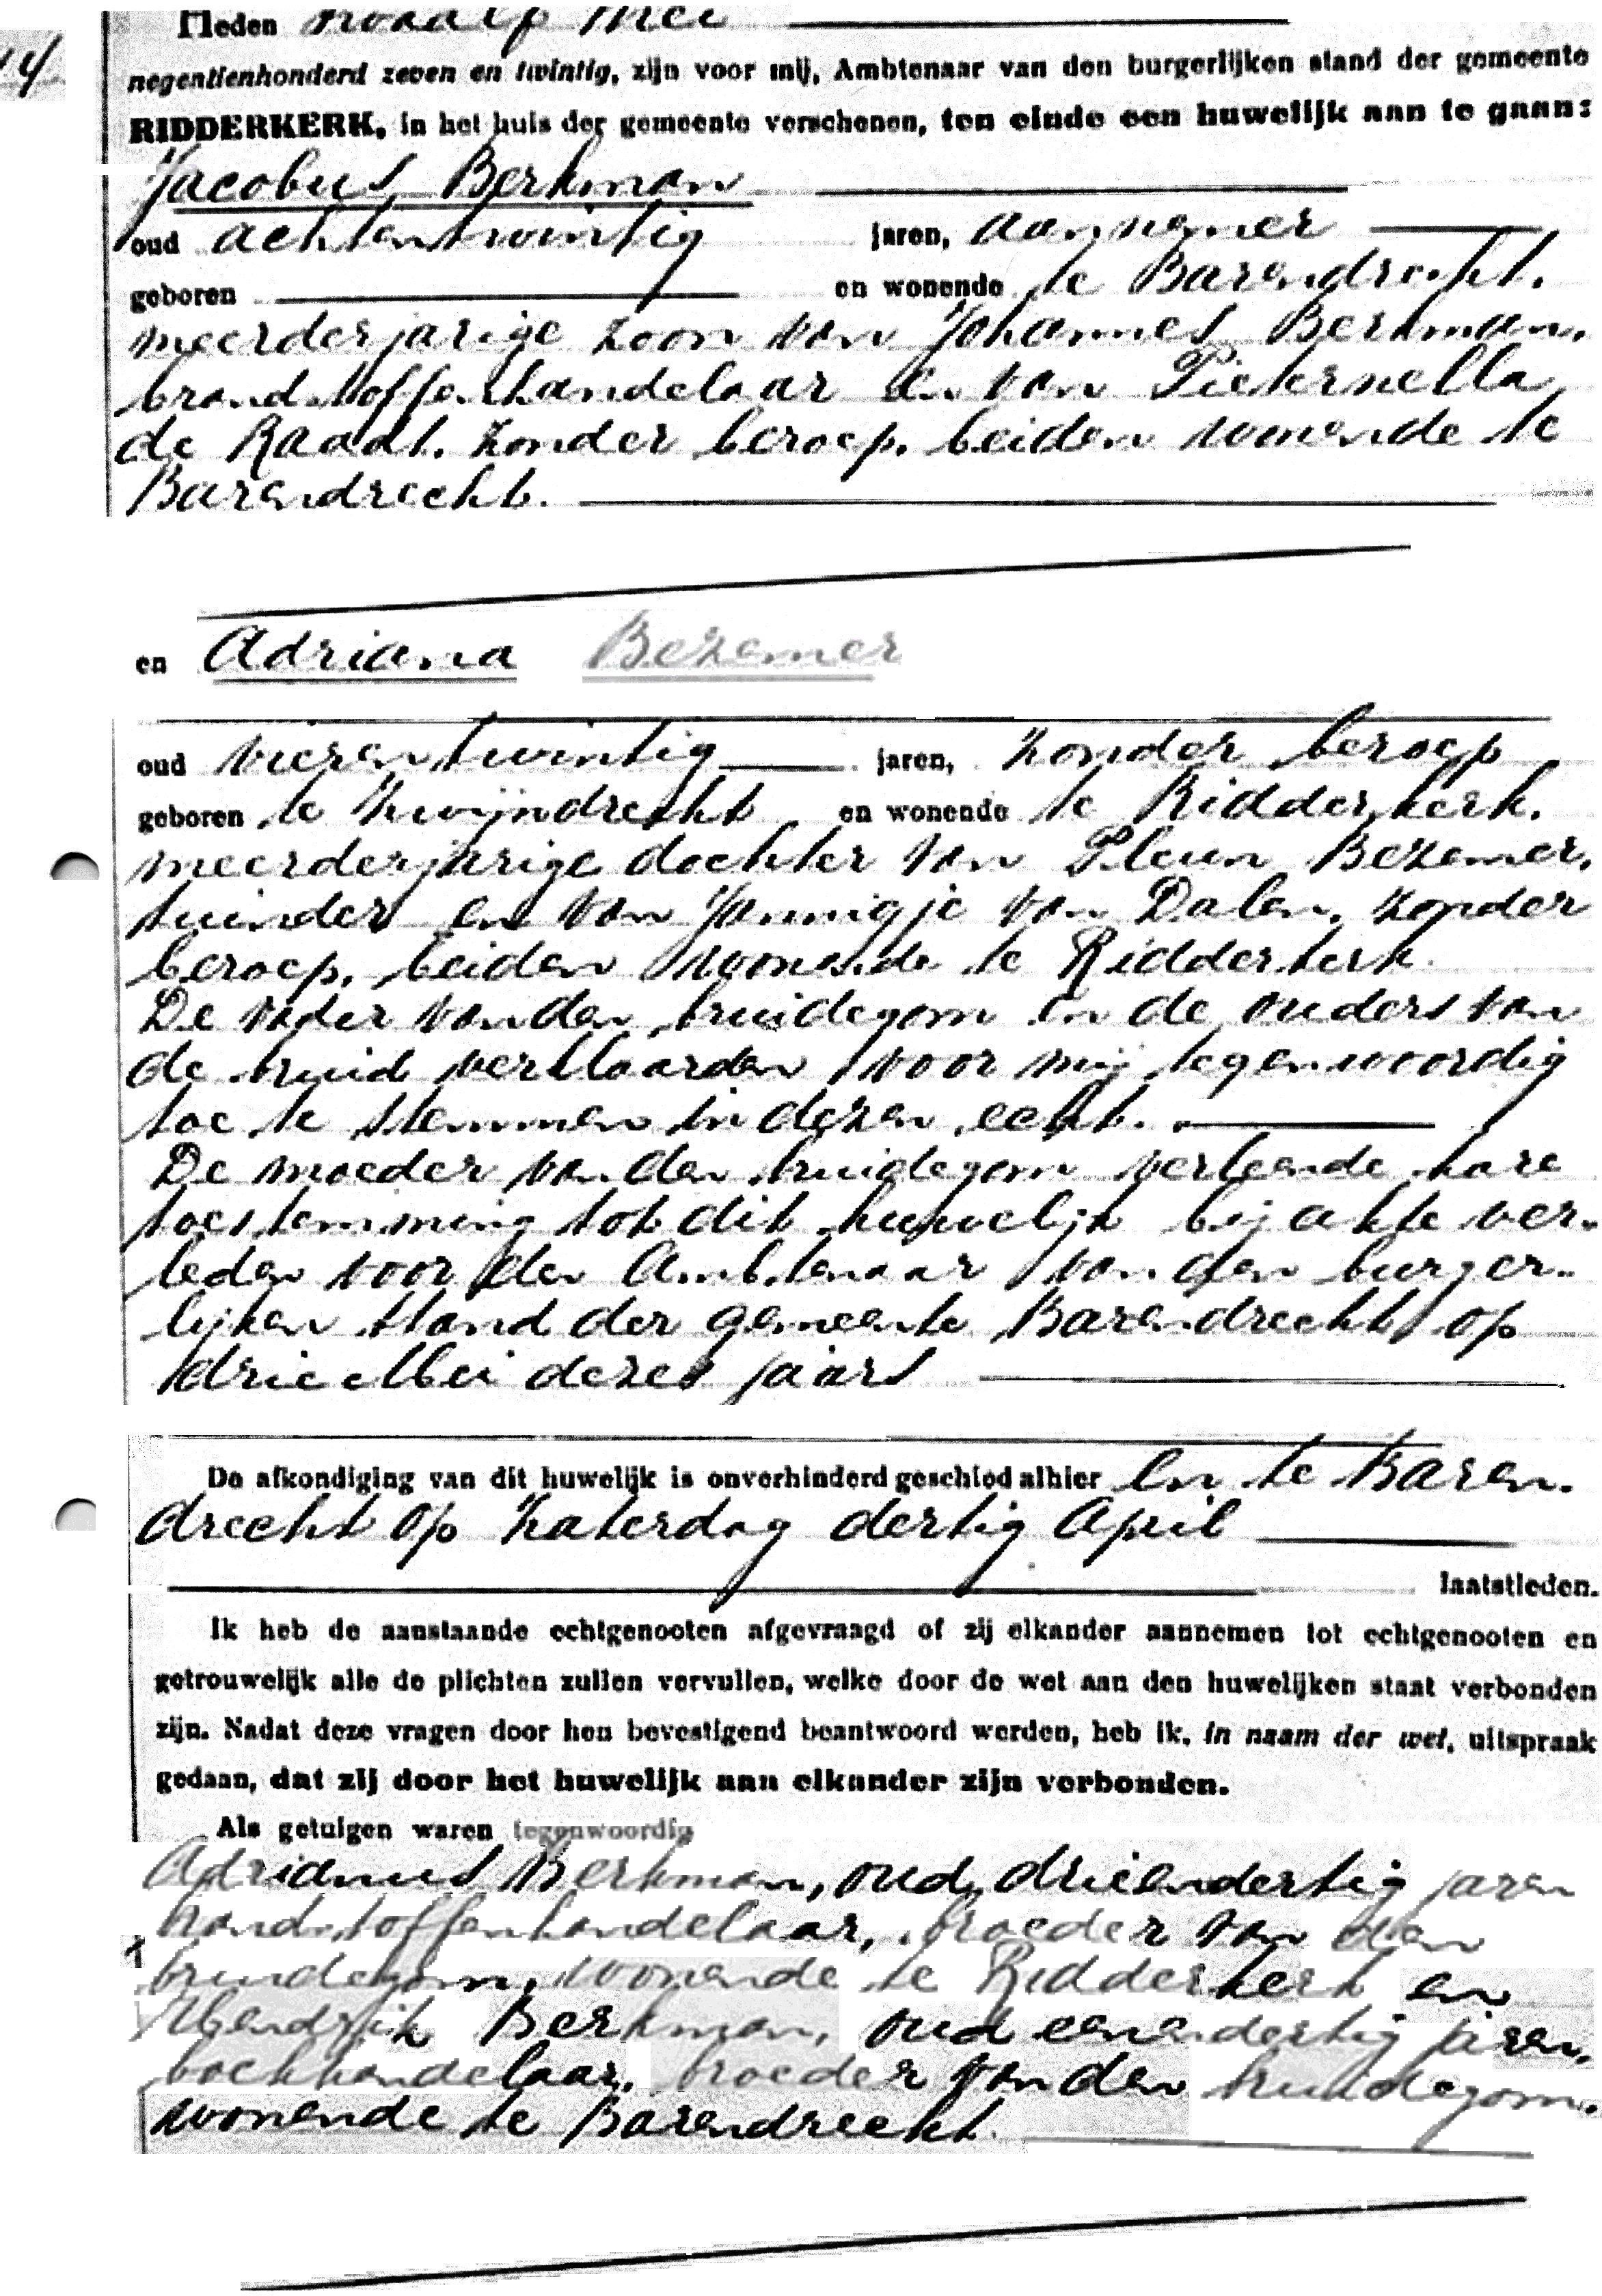 14
Heden twaalf Mei
negentienhonderd zeven en twintig, zijn voor mij, Ambtenaar van den burgerlijken stand der gemeente
RIDDERKERK, in het huis der gemeente verschenen, ten einde een huwelijk aan te gaan:
Jacobus Berkman
oud achtentwintig jaren, aannemer
geboren en wonende te Barendrecht.
meerderjarige zoon van Johannes Berkman,
brandstoffenhandelaar en van Pieternella
de Raadt. zonder beroep. beiden wonende te
Barendrecht.
en Adriana Bezemer
oud vierentwintig jaren, zonder beroep
geboren te Zwijndrecht en wonende te Ridderkerk.
meerderjarige dochter van Pleun Bezemer,
tuinder en van Jannigje van Dalen, zonder
beroep, beiden wonende te Ridderkerk
De vader van den bruidegom en de ouders van
de bruid verklaarden voor mij tegenwoordig
toe te stemmen in dezen echt.
De moeder van den bruidegom verleende hare
toestemming tot dit huwelijk bij akte ver-
leden voor den Ambtenaar van den burger-
lijken stand der gemeente Barendrecht op
drie Mei dezes jaars
De afkondiging van dit huwelijk is onverhinderd geschied alhier en te Baren-
drecht op Zaterdag dertig April
laatstleden.
Ik heb de aanstaande echtgenooten afgevraagd of zij elkander aannemen tot echtgenooten en
getrouwelijk alle de plichten zullen vervullen, welke door de wet aan den huwelijken staat verbonden
zijn. Nadat deze vragen door hen bevestigend beantwoord werden, heb ik, in naam der wet, uitspraak
gedaan, dat zij door het huwelijk aan elkander zijn verbonden.
Als getuigen waren tegenwoordig
Adrianus Berkman, oud drieendertig jaren
brandstoffenhandelaar, broeder van den
bruidegom, wonende te Ridderkerk en
Hendrik Berkman, oud eenendertig jaren,
boekhandelaar, broeder van den bruidegom.
wonende te Barendrecht.